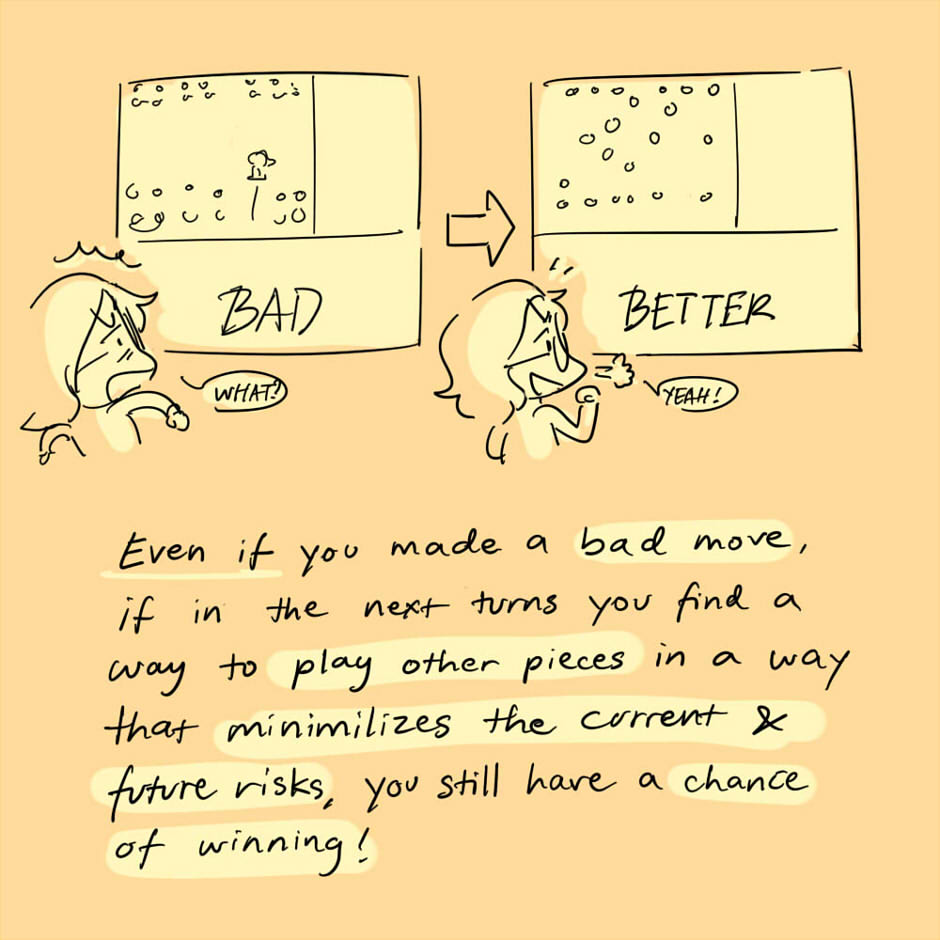 BAD
BETTER
WHAT?
YEAH!
Even if you made a bad move,
if in the next turns you find a
way to play other pieces in a way
that minimilizes the current &
future risks, you still have a chance
of winning!